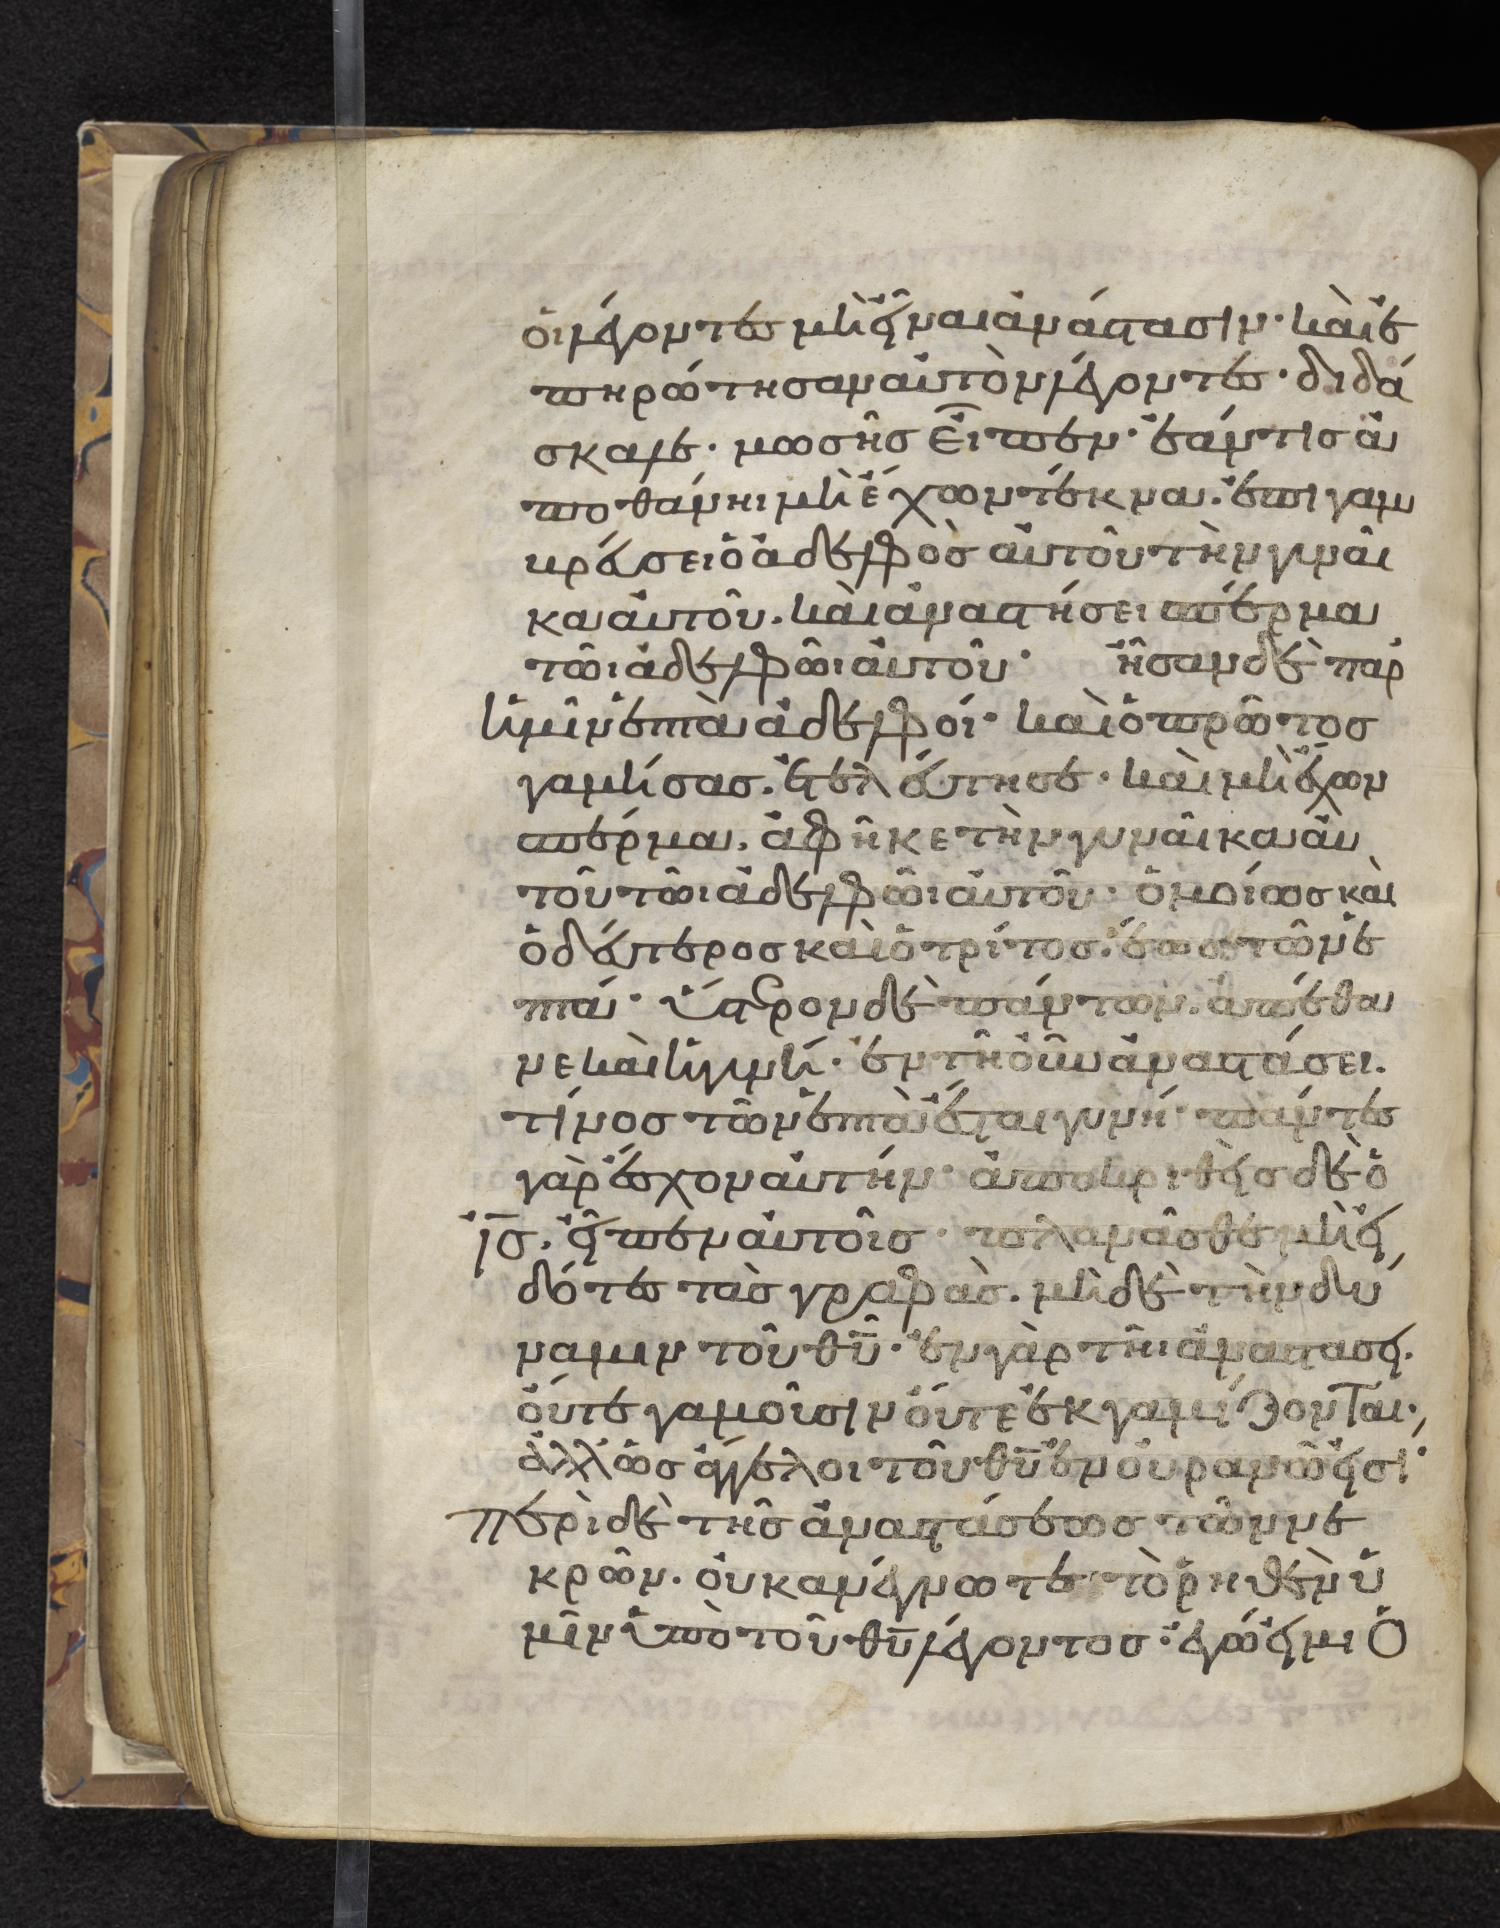 οἱ λέγοντες μὴ εἶναι ἀνάστασιν· καὶ ἐ
πηρώτησαν αὐτὸν λέγοντες· διδά
σκαλε· μωσῆς εἶπεν· ἐάν τις ἀ
ποθάνηι μὴ ἔχων τέκνα· ἐπιγαμ
βρεύσει ὁ ἀδελφὸς αὐτοῦ τὴν γυναῖ
κα αὐτοῦ· καὶ ἀναστήσει σπέρμα
τῶι ἀδελφῶι αὐτοῦ· ἦσαν δὲ παρ
ἡμῖν ἑπτὰ ἀδελφοί· καὶ ὁ πρῶτος
γαμήσας· ἐτελεύτησε· καὶ μὴ ἔχων
σπέρμα· ἀφῆκε τὴν γυναῖκα αὐ
τοῦ τῶι ἀδελφῶι αὐτοῦ· ὁμοίως καὶ
ὁ δεύτερος καὶ ὁ τρίτος· ἕως τῶν ἑ
πτά· ὕστερον δὲ πάντων· ἀπέθα
νε καὶ ἡ γυνή· ἐν τῆ οὖν ἀναστάσει·
τίνος τῶν ἑπτὰ ἔσται γυνή· πάντες
γὰρ ἔσχον αὐτήν· ἀποκριθεὶς δὲ ὁ
ἰς̅· εἶπεν αὐτοῖς· πλανᾶσθε μὴ εἰ
δότες τὰς γραφὰς· μὴ δὲ τὴν δύ
ναμιν τοῦ θῦ· ἐν γὰρ τῆι ἀναστάσει·
οὔτε γαμοῦσιν οὔτε ἐκγαμίζονται·
ἀλλ' ὡς ἄγγελοι τοῦ θῦ ἐν οὐρανῶ εἰσί·
περὶ δὲ τῆς ἀναστάσεως τῶν νε
κρῶν· οὐκ ἀνέγνωτε τὸ ῥηθὲν ὑ
μῖν ὑπὸ τοῦ θῦ λέγοντος· ἐγώ εἰμι ὁ